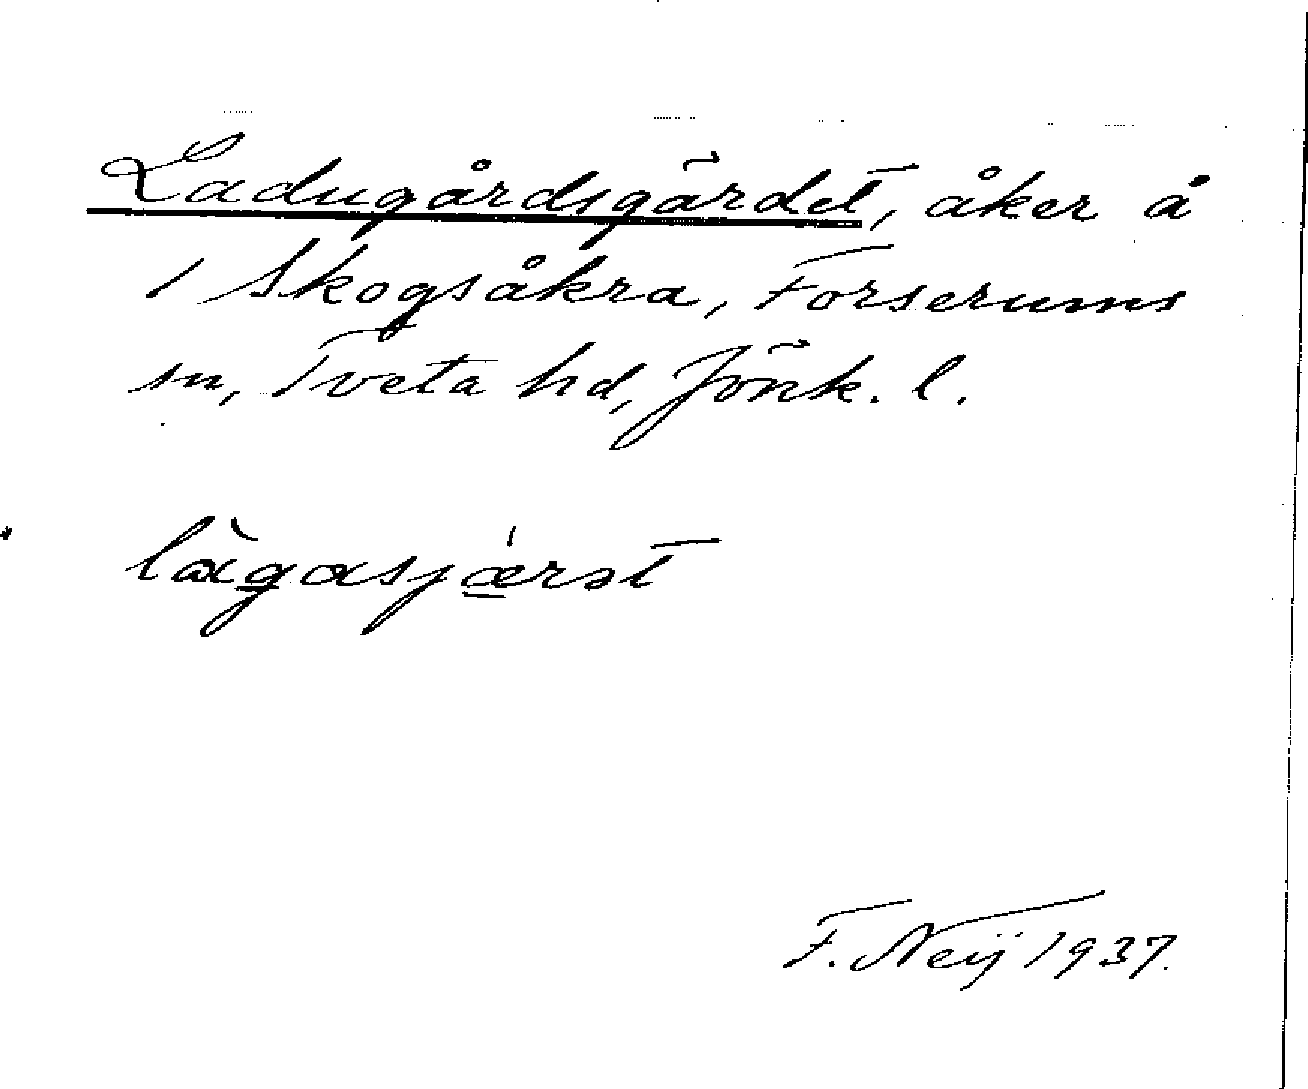 Ladugårdsgärdet, åker å
1 Skogsåkra, Forserums
sn, Tveta hd, Jönk. l.
làgasjǽrət
F. Neij 1937.